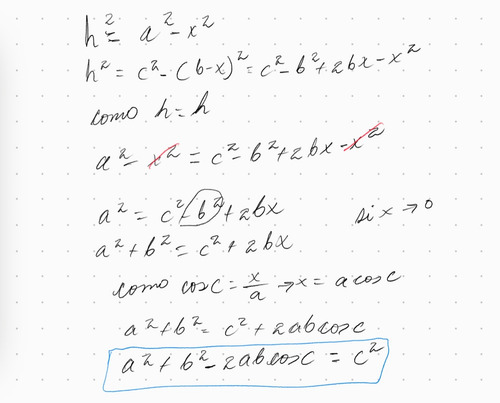 h² = a² - x²
h² = c² - (b-x)² = c² - b² + 2bx - x²
como h = h
a² - x² = c² - b² + 2bx - x²
a² = c² - b² + 2bx si x → 0
a² + b² = c² + 2bx
como cos c = x/a → x = a cos c
a² + b² = c² + 2ab cos c
a² + b² - 2ab cos c = c²